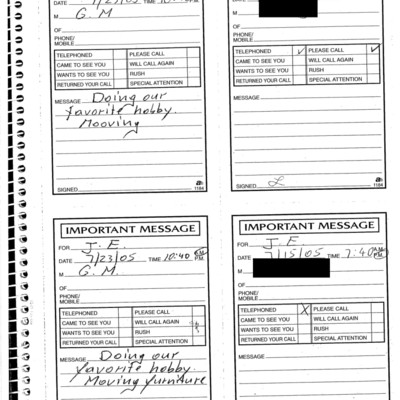 DATE 7/23/05 TIME 10:40
M G. M
OF
PHONE/
MOBILE
TELEPHONED PLEASE CALL
CAME TO SEE YOU WILL CALL AGAIN
WANTS TO SEE YOU RUSH
RETURNED YOUR CALL SPECIAL ATTENTION
MESSAGE Doing our
favorite hobby.
Mooving
SIGNED 1184
DATE TIME
M
OF
PHONE/
MOBILE
TELEPHONED ✓ PLEASE CALL ✓
CAME TO SEE YOU WILL CALL AGAIN
WANTS TO SEE YOU RUSH
RETURNED YOUR CALL SPECIAL ATTENTION
MESSAGE
SIGNED L 1184
IMPORTANT MESSAGE
FOR J. E.
DATE 7/23/05 TIME 10:40 A.M. P.M.
M G. M.
OF
PHONE/
MOBILE
TELEPHONED PLEASE CALL
CAME TO SEE YOU WILL CALL AGAIN
WANTS TO SEE YOU RUSH
RETURNED YOUR CALL SPECIAL ATTENTION
MESSAGE Doing our
favorite hobby.
Moving furniture
IMPORTANT MESSAGE
FOR J. E.
DATE 7/15/05 TIME 7:40 A.M. P.M.
M
OF
PHONE/
MOBILE
TELEPHONED X PLEASE CALL
CAME TO SEE YOU WILL CALL AGAIN
WANTS TO SEE YOU RUSH
RETURNED YOUR CALL SPECIAL ATTENTION
MESSAGE